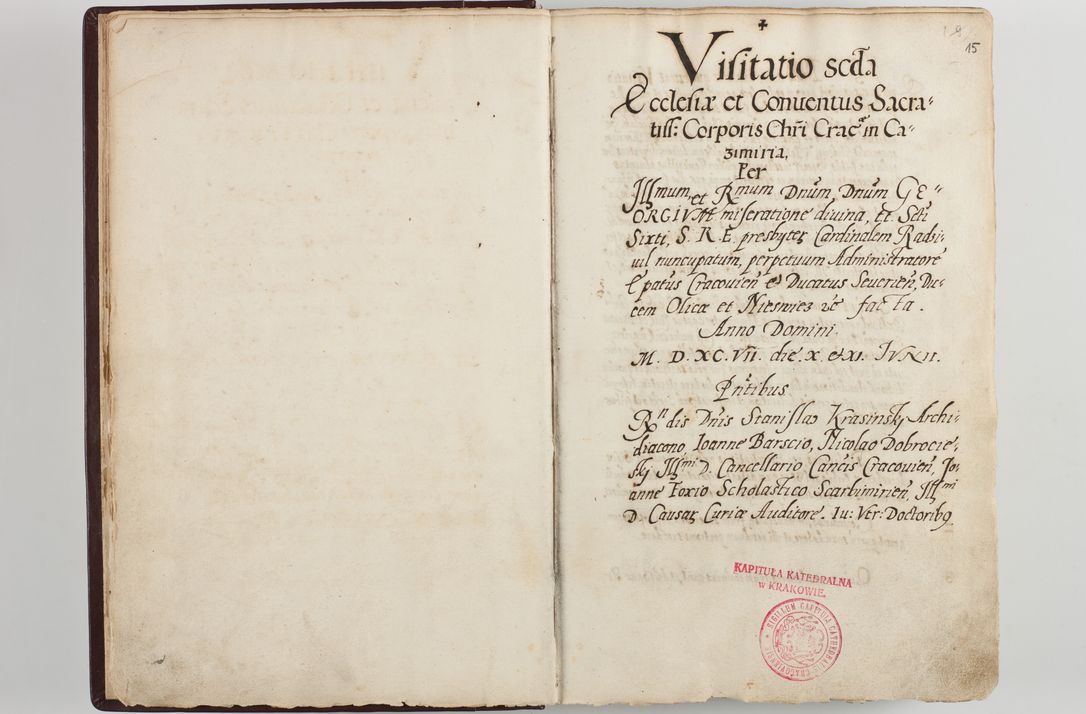 15
Visitatio scđa
Ecclesiæ et Conuentus Sacra-
tiss: Corporis Chr̃i Crac^a in Ca-
zimiria,
Per
Illmum, et Rmum Dñum, Dñum GE-
ORGIVM miseratione diuina, tt. Scti
Sixti, S. R. E. presbyteꝝ Cardinalem Radzi-
uil nuncupatum, perpetuum Administratorē
Epatus Cracouieñ et Ducatus Seuerieñ, Du-
cem Olicæ et Niesuies facta.
Anno Domini.
M. D. XC. VII. die. X. et XI. IVNII.
Pñtibus
Rndis Dñis Stanislao Krasinskj Archi-
diacono, Ioanne Barscio, Nicolao Dobrocie-
skj Illmi D. Cancellario, Cancis Cracouieñ, Jo-
anne Foxio Scholastico Scarbimirieñ, Illmi
D. Causaꝝ Curiæ Auditore. Iu: Vtr: Doctoribꝰ
KAPITUŁA KATEDRALNA
w KRAKOWIE.
SIGILLUM CAPITULI CATHEDRALIS CRACOVIENSIS